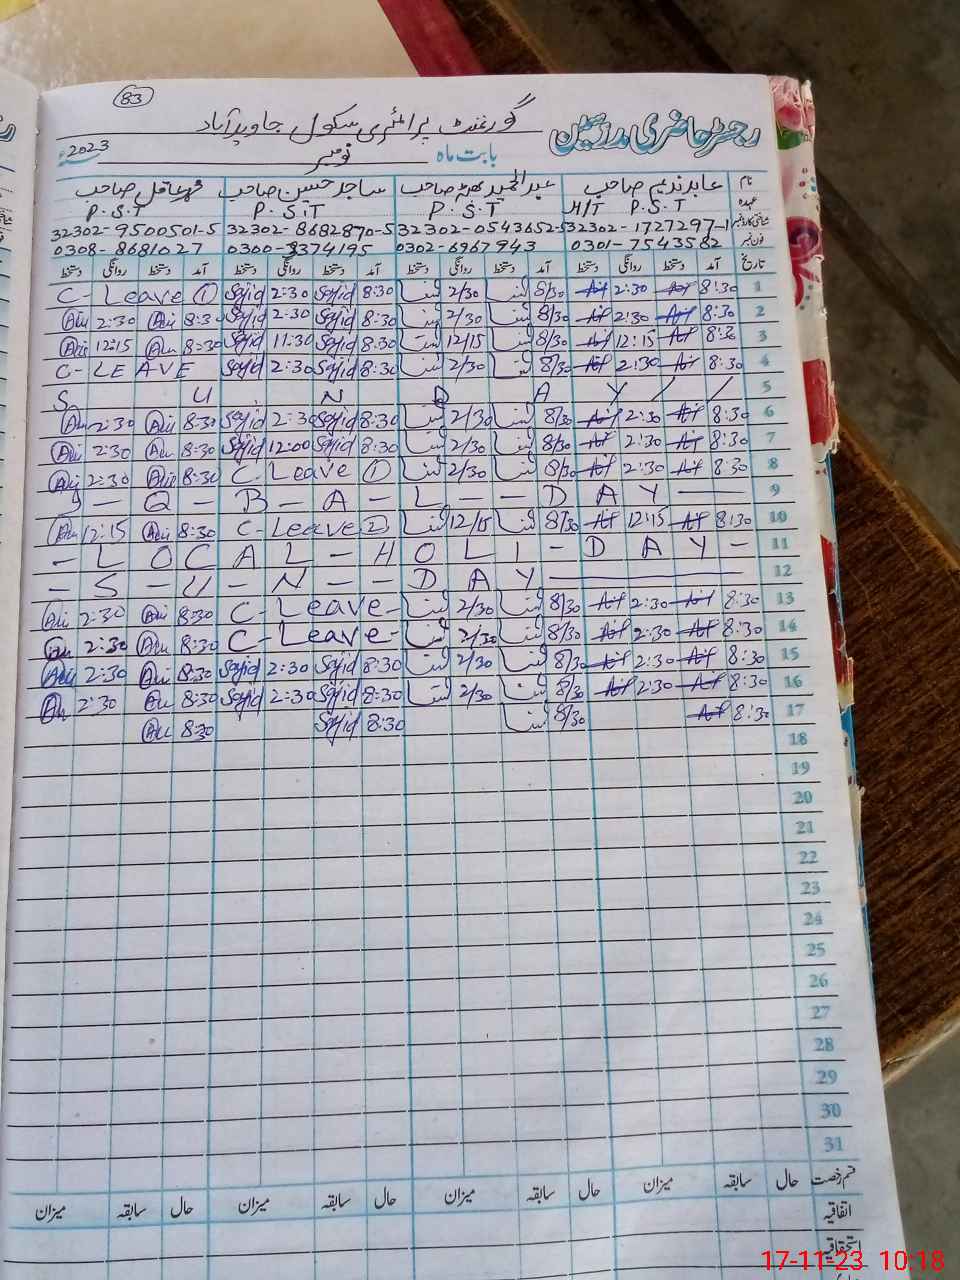 83
رجسٹر حاضری مدرسین گورنمنٹ پرائمری سکول جاوید آباد
بابت ماہ نومبر 2023ء
نام عابد ندیم صاحب عبدالحمید صاحب ساجد حسین صاحب صاحب
عہدہ H/T P.S.T P.S.T P.S.T P.S.T
شناختی کارڈ نمبر 32302-1727297-1 32302-0543652-5 32302-8682870-5 32302-9500501-5
فون نمبر 0301-7543582 0302-6967943 0300-3374195 0308-8681027
تاریخ آمد دستخط روانگی دستخط آمد دستخط روانگی دستخط آمد دستخط روانگی دستخط آمد دستخط روانگی دستخط
C-Leave 1 Sajid 2:30 Sajid 8:30 2/30 8/30 2:30 8:30 1
2:30 8:30 Sajid 2:30 Sajid 8:30 2/30 8/30 2:30 8:30 2
12:15 8:30 Sajid 11:30 Sajid 8:30 12/15 8/30 12:15 8:30 3
C-LEAVE Sajid 2:30 Sajid 8:30 2/30 8/30 2:30 8:30 4
S U N D A Y / / 5
2:30 8:30 Sajid 2:30 Sajid 8:30 2/30 8/30 2:30 8:30 6
2:30 8:30 Sajid 12:00 Sajid 8:30 2/30 8/30 2:30 8:30 7
2:30 8:30 C-Leave 1 2/30 8/30 2:30 8:30 8
I-Q-B-A-L--DAY 9
12:15 8:30 C-Leave 2 12/15 8/30 12:15 8:30 10
-LOCAL-HOLI-DAY- 11
-S-U-N--DAY 12
2:30 8:30 C-Leave- 2/30 8/30 2:30 8:30 13
2:30 8:30 C-Leave- 2/30 8/30 2:30 8:30 14
2:30 8:30 Sajid 2:30 Sajid 8:30 2/30 8/30 2:30 8:30 15
2:30 8:30 Sajid 2:30 Sajid 8:30 2/30 8/30 2:30 8:30 16
8:30 Sajid 8:30 8/30 8:30 17
18
19
20
21
22
23
24
25
26
27
28
29
30
31
قسم رخصت حال سابقہ میزان حال سابقہ میزان حال سابقہ میزان حال سابقہ میزان
اتفاقیہ
استحقاقیہ
17-11-23 10:18